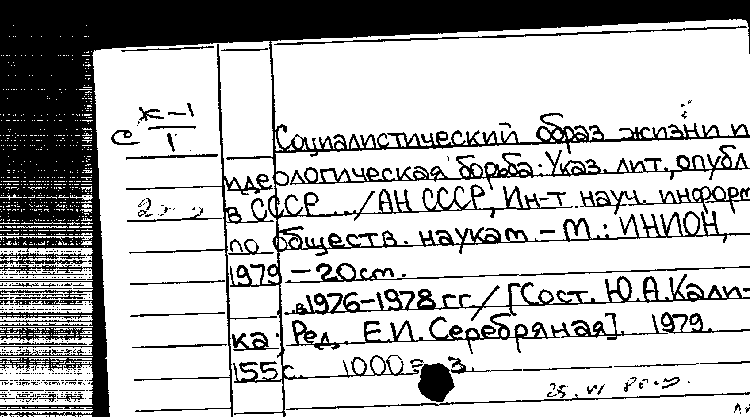 с К-1
1
Социалистический образ жизни и
идеологическая борьба: Указ. лит., опубл
в СССР .../АН СССР, Ин-т науч. информ
по обществ. наукам. - М.: ИНИОН,
1979 - 20 см.
...в 1976-1978 гг/[Сост. Ю.А. Кали-
ка; Ред. Е.И. Серебряная]. 1979.
155 с. 1000 э з.